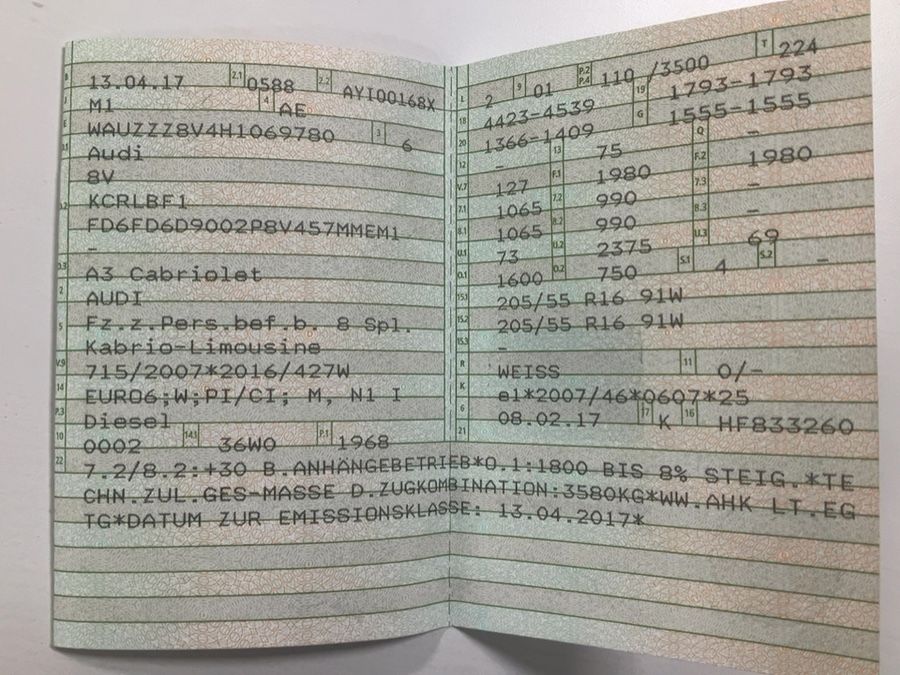 B 13.04.17 2.1 0588 2.2 AYI00168X
J M1 4 AE
E WAUZZZ8V4H1069780 3 6
D.1 Audi
8V
D.2 KCRLBF1
FD6FD6D9002P8V457MMEM1
–
D.3 A3 Cabriolet
2 AUDI
5 Fz.z.Pers.bef.b. 8 Spl.
Kabrio-Limousine
V.9 715/2007*2016/427W
14 EURO6;W;PI/CI; M, N1 I
P.3 Diesel
10 0002 14.1 36W0 P.1 1968
L 2 9 01 P.2 P.4 110 /3500 T 224
18 4423-4539 19 1793-1793
20 1366-1409 G 1555-1555
12 – 13 75 Q –
V.7 127 F.1 1980 F.2 1980
7.1 1065 7.2 990 7.3 –
8.1 1065 8.2 990 8.3 –
U.1 73 U.2 2375 U.3 69
O.1 1600 O.2 750 S.1 4 S.2 –
15.1 205/55 R16 91W
15.2 205/55 R16 91W
15.3 –
R WEISS 11 0/-
K e1*2007/46*0607*25
6 08.02.17 17 K 16 HF833260
21
22 7.2/8.2:+30 B.ANHÄNGEBETRIEB*O.1:1800 BIS 8% STEIG.*TE
CHN.ZUL.GES-MASSE D.ZUGKOMBINATION:3580KG*WW.AHK LT.EG
TG*DATUM ZUR EMISSIONSKLASSE: 13.04.2017*